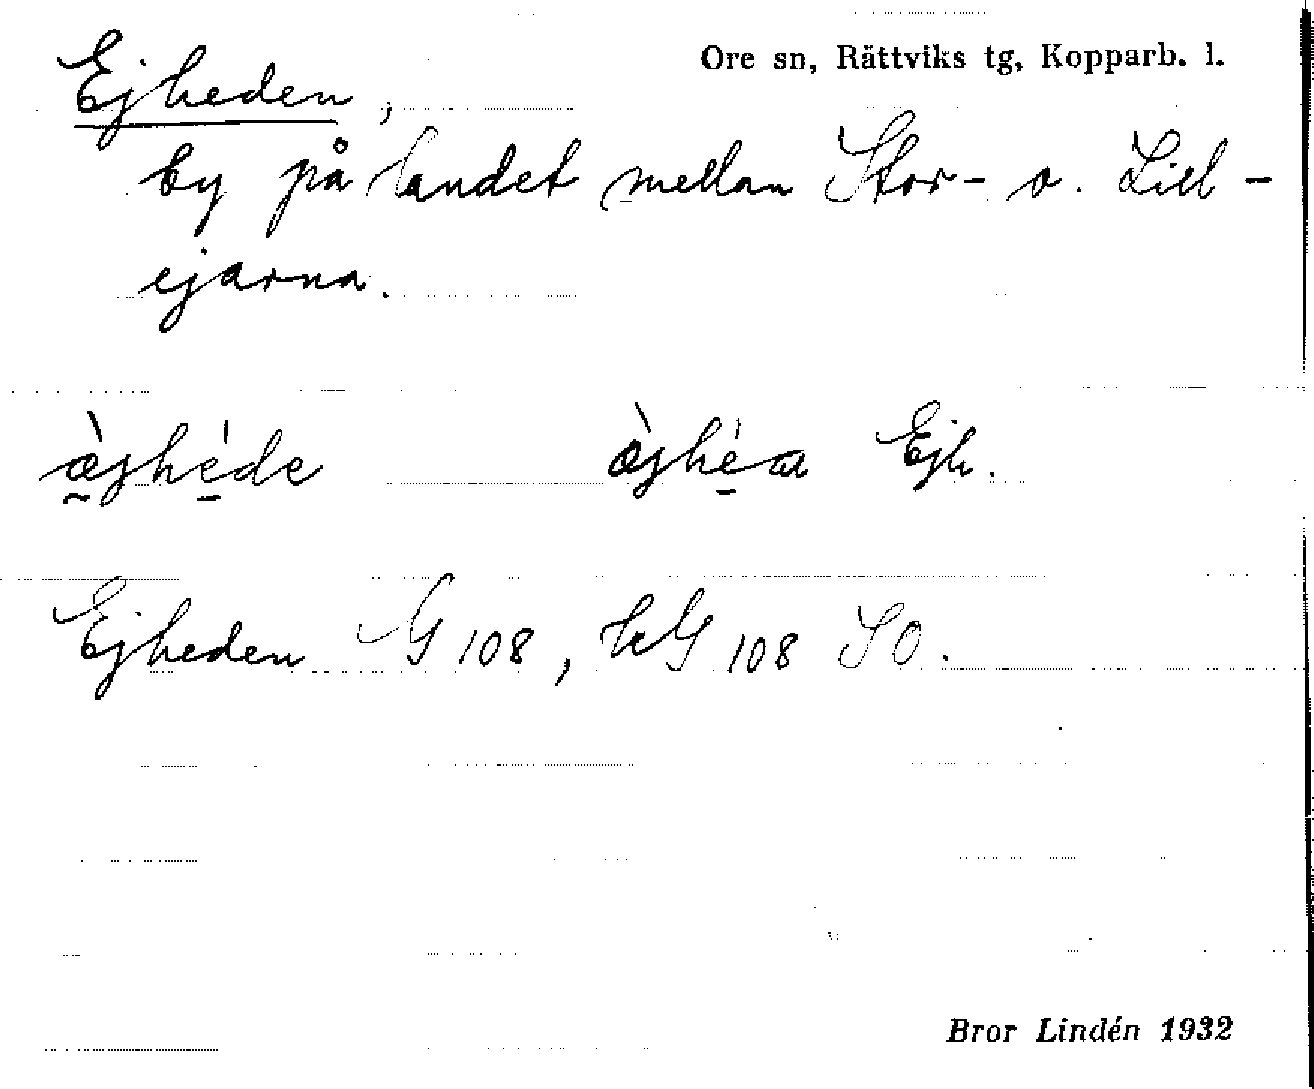 Ore sn, Rättviks tg, Kopparb. l.
Ejheden,
by på landet mellan Stor- o. Lill-
ejarna.
æ̀jhède òjhéa Ejh.
Ejheden G 108, kG 108 SO.
Bror Lindén 1932